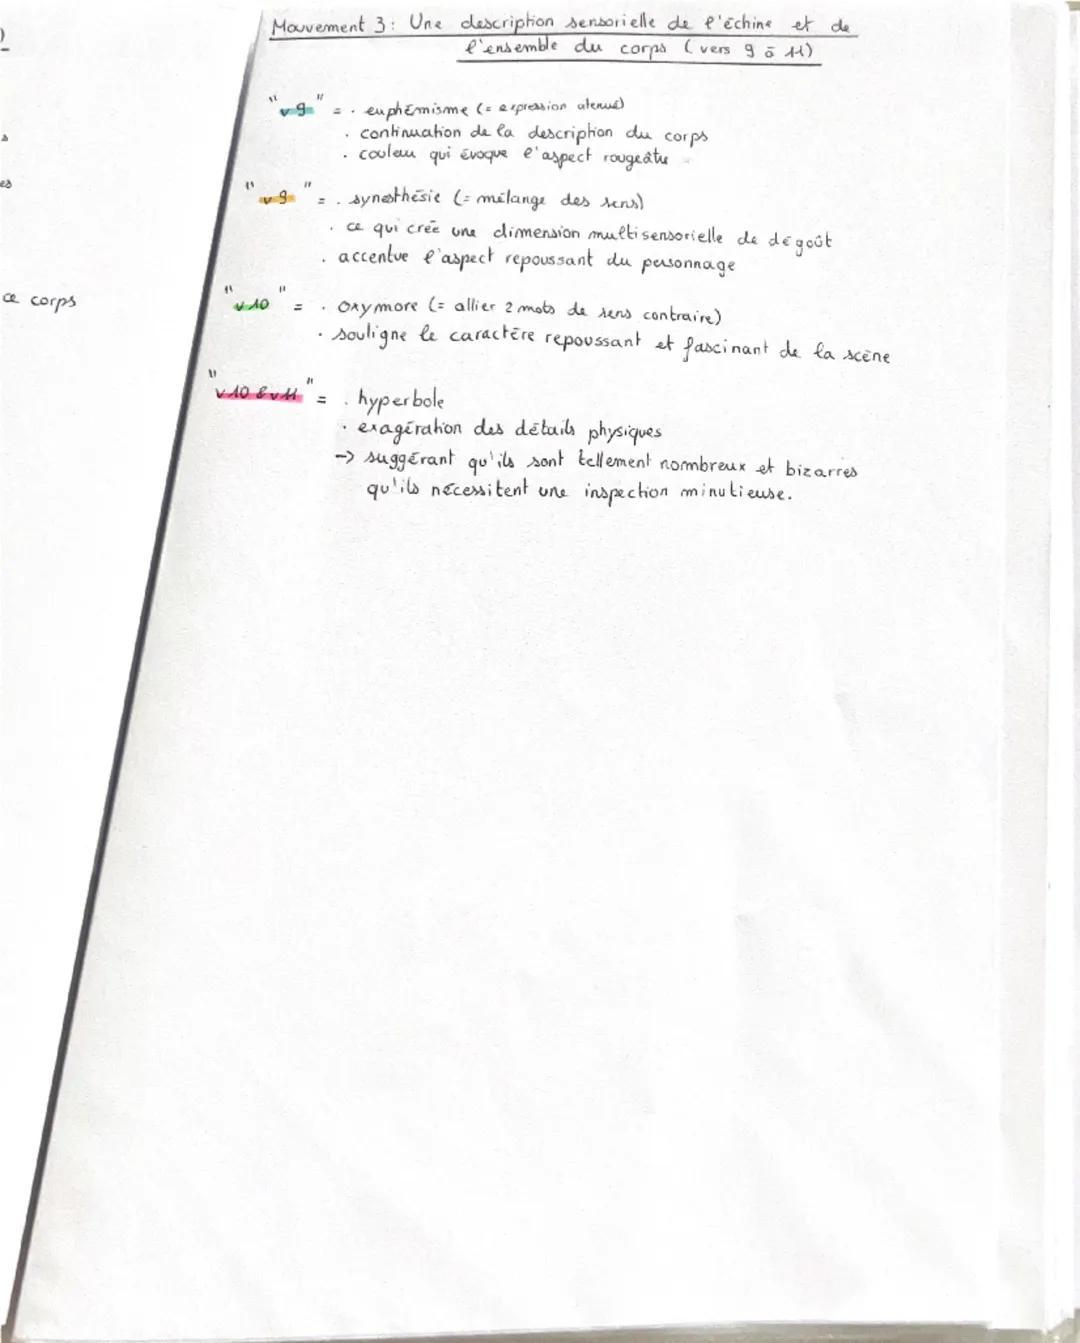 )
s
es
ce corps
Mouvement 3 : Une description sensorielle de l'échine et de
l'ensemble du corps ( vers 9 à 11)
"v 9" = . euphémisme (= expression atenué)
. continuation de la description du corps
. couleur qui évoque l'aspect rougeâtre
"v 9" = . synesthésie (= mélange des sens)
. ce qui crée une dimension multisensorielle de dégoût
. accentue l'aspect repoussant du personnage
"v 10" = . oxymore (= allier 2 mots de sens contraire)
. souligne le caractère repoussant et fascinant de la scène
"v 10 & v 11" = . hyperbole
. exagération des détails physiques
-> suggérant qu'ils sont tellement nombreux et bizarres
qu'ils nécessitent une inspection minutieuse.